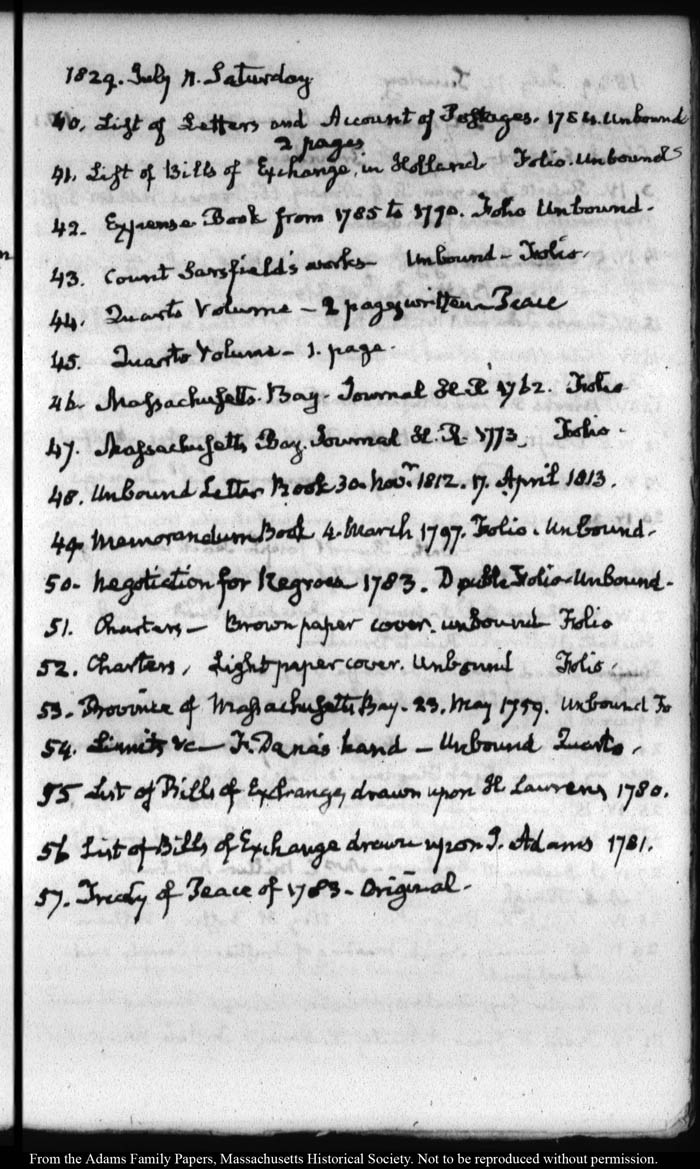 1829. July 11. Saturday
40. List of Letters and Account of Postages. 1784. Unbound
2 pages
41. List of Bills of Exchange, in Holland Folio. Unbound
42. Expense Book from 1785 to 1790. Folio Unbound.
43. Count Sarsfield's works Unbound - Folio.
44. Quarto Volume - 2 pages written Peace
45. Quarto Volume - 1. page.
46. Massachusetts. Bay. Journal H. R 1762. Folio
47. Massachusetts Bay. Journal H. R. 1773 Folio.
48. Unbound Letter Book 30. Novr. 1812. 17. April 1813.
49. Memorandum Book 4. March 1797. Folio. Unbound.
50. Negotiction for Negroes 1783. Double Folio. Unbound.
51. Charters - Brown paper cover. unbound Folio
52. Charters, Light paper cover. Unbound Folio.
53. Province of Massachusetts Bay. 23. May 1759. Unbound Fo
54. Limits &c - F. Dana's hand - Unbound Quarto.
55 List of Bills of Exchange, drawn upon H Laurens 1780.
56 List of Bills of Exchange drawn upon J. Adams 1781.
57. Treaty of Peace of 1783 - Original.
From the Adams Family Papers, Massachusetts Historical Society. Not to be reproduced without permission.